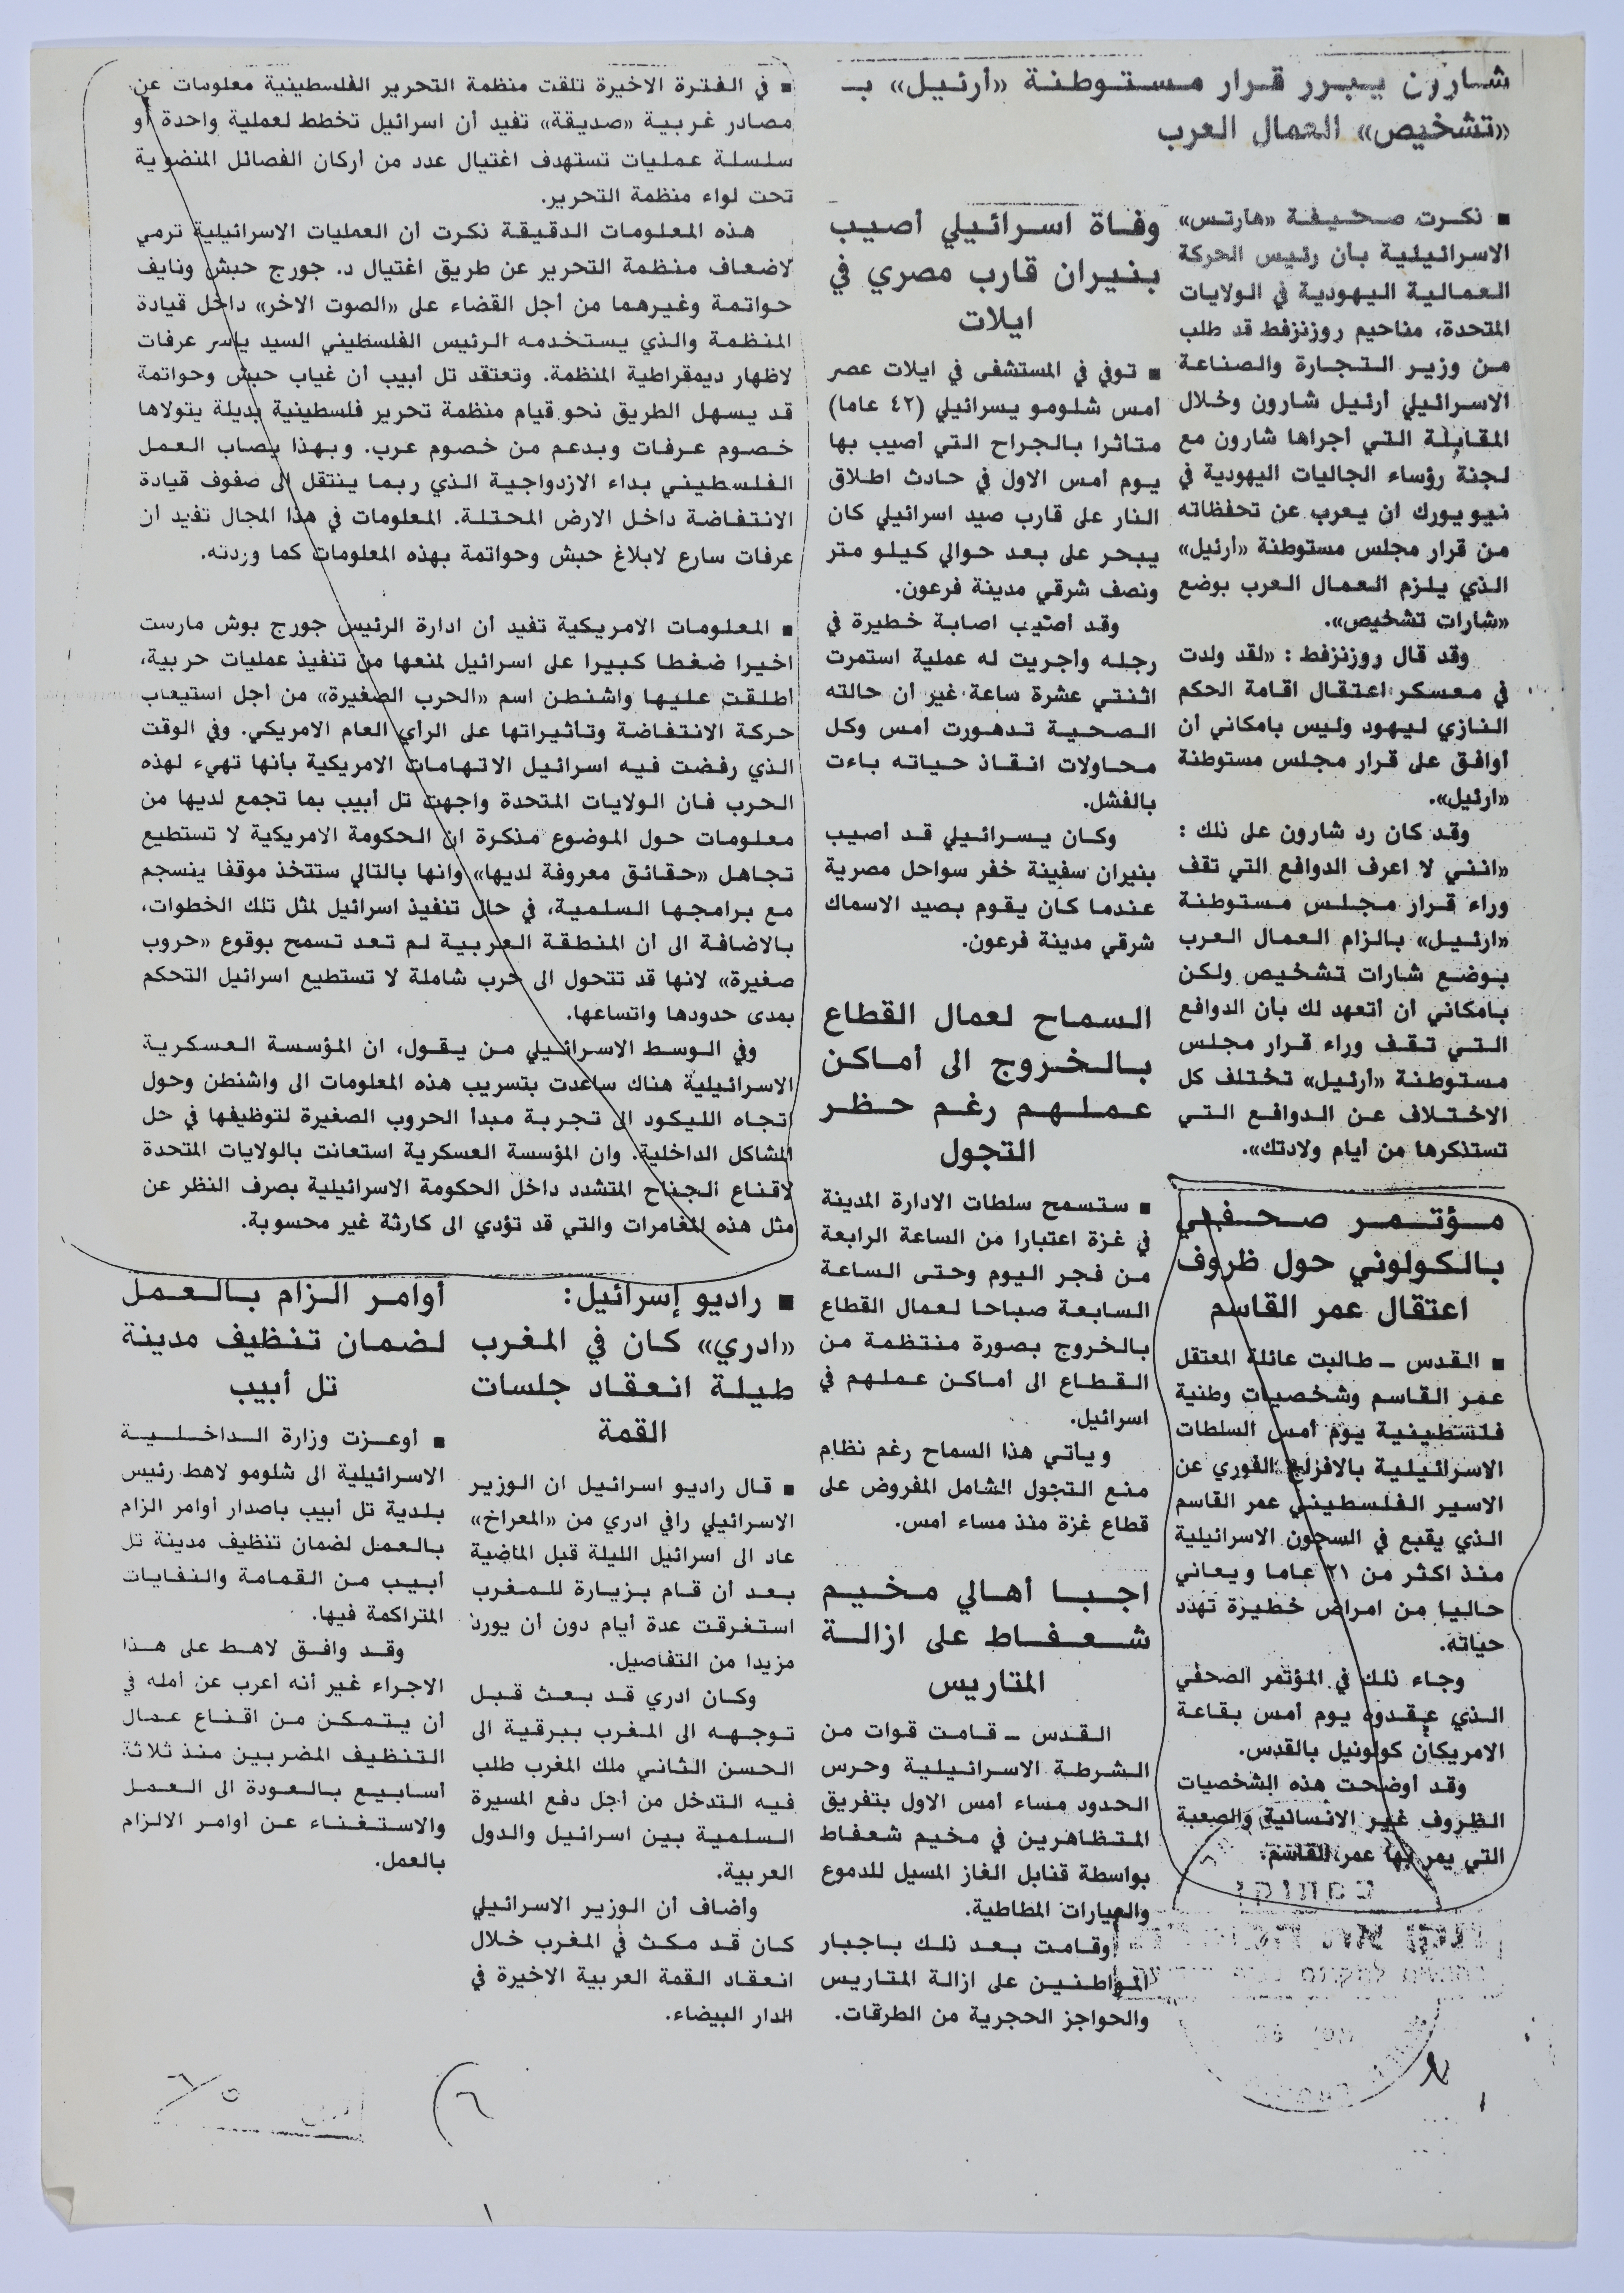 شارون يبرر قرار مستوطنة «أرئيل» بـ
«تشخيص» العمال العرب
■ نكرت صحيفة «هآرتس»
الاسرائيلية بأن رئيس الحركة
العمالية اليهودية في الولايات
المتحدة، مناحيم روزنزفط قد طلب
من وزير التجارة والصناعة
الاسرائيلي أرئيل شارون وخلال
المقابلة التي اجراها شارون مع
لجنة رؤساء الجاليات اليهودية في
نيويورك ان يعرب عن تحفظاته
من قرار مجلس مستوطنة «ارئيل»
الذي يلزم العمال العرب بوضع
«شارات تشخيص».
وقد قال روزنزفط : «لقد ولدت
في معسكر اعتقال اقامة الحكم
النازي ليهود وليس بامكاني أن
أوافق على قرار مجلس مستوطنة
«ارئيل».
وقد كان رد شارون على ذلك :
«انني لا اعرف الدوافع التي تقف
وراء قرار مجلس مستوطنة
«ارئيل» بالزام العمال العرب
بوضع شارات تشخيص ولكن
بامكاني أن أتعهد لك بأن الدوافع
التي تقف وراء قرار مجلس
مستوطنة «أرئيل» تختلف كل
الاختلاف عن الدوافع التي
تستذكرها من أيام ولادتك».
مؤتمر صحفي
بالكولوني حول ظروف
اعتقال عمر القاسم
■ القدس ــ طالبت عائلة المعتقل
عمر القاسم وشخصيات وطنية
فلسطينية يوم أمس السلطات
الاسرائيلية بالافراج الفوري عن
الاسير الفلسطيني عمر القاسم
الذي يقبع في السجون الاسرائيلية
منذ اكثر من ٢١ عاما ويعاني
حاليا من امراض خطيرة تهدد
حياته.
وجاء ذلك في المؤتمر الصحفي
الذي عقدوه يوم أمس بقاعة
الامريكان كولونيل بالقدس.
وقد أوضحت هذه الشخصيات
الظروف غير الانسانية والصعبة
التي يمر بها عمر القاسم.
وفاة اسرائيلي أصيب
بنيران قارب مصري في
ايلات
■ توفي في المستشفى في ايلات عصر
أمس شلومو يسرائيلي (٤٢ عاما)
متأثرا بالجراح التي أصيب بها
يوم أمس الاول في حادث اطلاق
النار على قارب صيد اسرائيلي كان
يبحر على بعد حوالي كيلو متر
ونصف شرقي مدينة فرعون.
وقد أصيب اصابة خطيرة في
رجله وأجريت له عملية استمرت
اثنتي عشرة ساعة غير أن حالته
الصحية تدهورت أمس وكل
محاولات انقاذ حياته باءت
بالفشل.
وكان يسرائيلي قد أصيب
بنيران سفينة خفر سواحل مصرية
عندما كان يقوم بصيد الاسماك
شرقي مدينة فرعون.
السماح لعمال القطاع
بالخروج الى أماكن
عملهم رغم حظر
التجول
■ ستسمح سلطات الادارة المدينة
في غزة اعتبارا من الساعة الرابعة
من فجر اليوم وحتى الساعة
السابعة صباحا لعمال القطاع
بالخروج بصورة منتظمة من
القطاع الى أماكن عملهم في
اسرائيل.
ويأتي هذا السماح رغم نظام
منع التجول الشامل المفروض على
قطاع غزة منذ مساء أمس.
اجبا أهالي مخيم
شعفاط على ازالة
المتاريس
القدس ــ قامت قوات من
الشرطة الاسرائيلية وحرس
الحدود مساء أمس الاول بتفريق
المتظاهرين في مخيم شعفاط
بواسطة قنابل الغاز المسيل للدموع
والعيارات المطاطية.
وقامت بعد ذلك باجبار
المواطنين على ازالة المتاريس
والحواجز الحجرية من الطرقات.
■ في الفترة الاخيرة تلقت منظمة التحرير الفلسطينية معلومات عن
مصادر غربية «صديقة» تفيد أن اسرائيل تخطط لعملية واحدة أو
سلسلة عمليات تستهدف اغتيال عدد من أركان الفصائل المنضوية
تحت لواء منظمة التحرير.
هذه المعلومات الدقيقة نكرت أن العمليات الاسرائيلية ترمي
لاضعاف منظمة التحرير عن طريق اغتيال د. جورج حبش ونايف
حواتمة وغيرهما من أجل القضاء على «الصوت الاخر» داخل قيادة
المنظمة والذي يستخدمه الرئيس الفلسطيني السيد ياسر عرفات
لاظهار ديمقراطية المنظمة. وتعتقد تل أبيب أن غياب حبش وحواتمة
قد يسهل الطريق نحو قيام منظمة تحرير فلسطينية بديلة يتولاها
خصوم عرفات وبدعم من خصوم عرب. وبهذا يصاب العمل
الفلسطيني بداء الازدواجية الذي ربما ينتقل الى صفوف قيادة
الانتفاضة داخل الارض المحتلة. المعلومات في هذا المجال تفيد أن
عرفات سارع لابلاغ حبش وحواتمة بهذه المعلومات كما وردته.
■ المعلومات الامريكية تفيد أن ادارة الرئيس جورج بوش مارست
اخيرا ضغطا كبيرا على اسرائيل لمنعها من تنفيذ عمليات حربية،
أطلقت عليها واشنطن اسم «الحرب الصغيرة» من أجل استيعاب
حركة الانتفاضة وتأثيراتها على الرأي العام الامريكي. وفي الوقت
الذي رفضت فيه اسرائيل الاتهامات الامريكية بأنها تهيء لهذه
الحرب فان الولايات المتحدة واجهت تل أبيب بما تجمع لديها من
معلومات حول الموضوع منكرة ان الحكومة الامريكية لا تستطيع
تجاهل «حقائق معروفة لديها» وانها بالتالي ستتخذ موقفا ينسجم
مع برامجها السلمية، في حال تنفيذ اسرائيل لمثل تلك الخطوات،
بالاضافة الى أن المنطقة العربية لم تعد تسمح بوقوع «حروب
صغيرة» لانها قد تتحول الى حرب شاملة لا تستطيع اسرائيل التحكم
بمدى حدودها واتساعها.
وفي الوسط الاسرائيلي من يقول، ان المؤسسة العسكرية
الاسرائيلية هناك ساعدت بتسريب هذه المعلومات الى واشنطن وحول
اتجاه الليكود الى تجربة مبدأ الحروب الصغيرة لتوظيفها في حل
المشاكل الداخلية. وان المؤسسة العسكرية استعانت بالولايات المتحدة
لاقناع الجناح المتشدد داخل الحكومة الاسرائيلية بصرف النظر عن
مثل هذه المغامرات والتي قد تؤدي الى كارثة غير محسوبة.
■ راديو إسرائيل:
«ادري» كان في المغرب
طيلة انعقاد جلسات
القمة
■ قال راديو اسرائيل ان الوزير
الاسرائيلي رافي ادري من «المعراخ»
عاد الى اسرائيل الليلة قبل الماضية
بعد أن قام بزيارة للمغرب
استغرقت عدة أيام دون أن يورد
مزيدا من التفاصيل.
وكان ادري قد بعث قبل
توجهه الى المغرب ببرقية الى
الحسن الثاني ملك المغرب طلب
فيه التدخل من أجل دفع المسيرة
السلمية بين اسرائيل والدول
العربية.
وأضاف أن الوزير الاسرائيلي
كان قد مكث في المغرب خلال
انعقاد القمة العربية الاخيرة في
الدار البيضاء.
أوامر الزام بالعمل
لضمان تنظيف مدينة
تل أبيب
■ أوعزت وزارة الداخلية
الاسرائيلية الى شلومو لاهط رئيس
بلدية تل أبيب باصدار أوامر الزام
بالعمل لضمان تنظيف مدينة تل
أبيب من القمامة والنفايات
المتراكمة فيها.
وقد وافق لاهط على هذا
الاجراء غير أنه أعرب عن أمله في
أن يتمكن من اقناع عمال
التنظيف المضربين منذ ثلاثة
أسابيع بالعودة الى العمل
والاستغناء عن أوامر الالزام
بالعمل.
٦
٦/٥
١